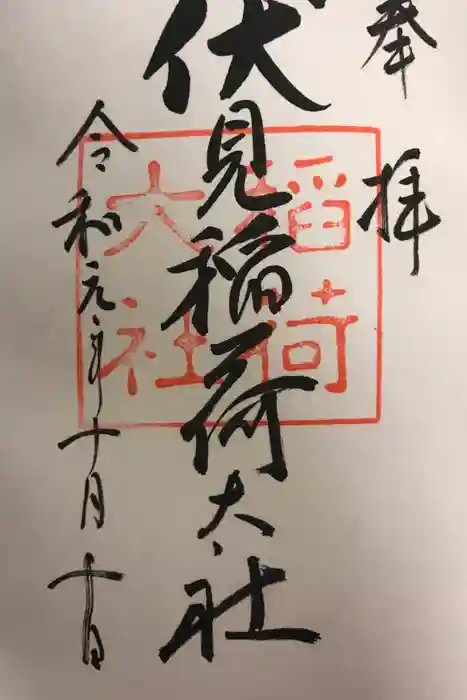 奉拝
伏見稲荷大社
令和元年十月十日
稲荷
大社